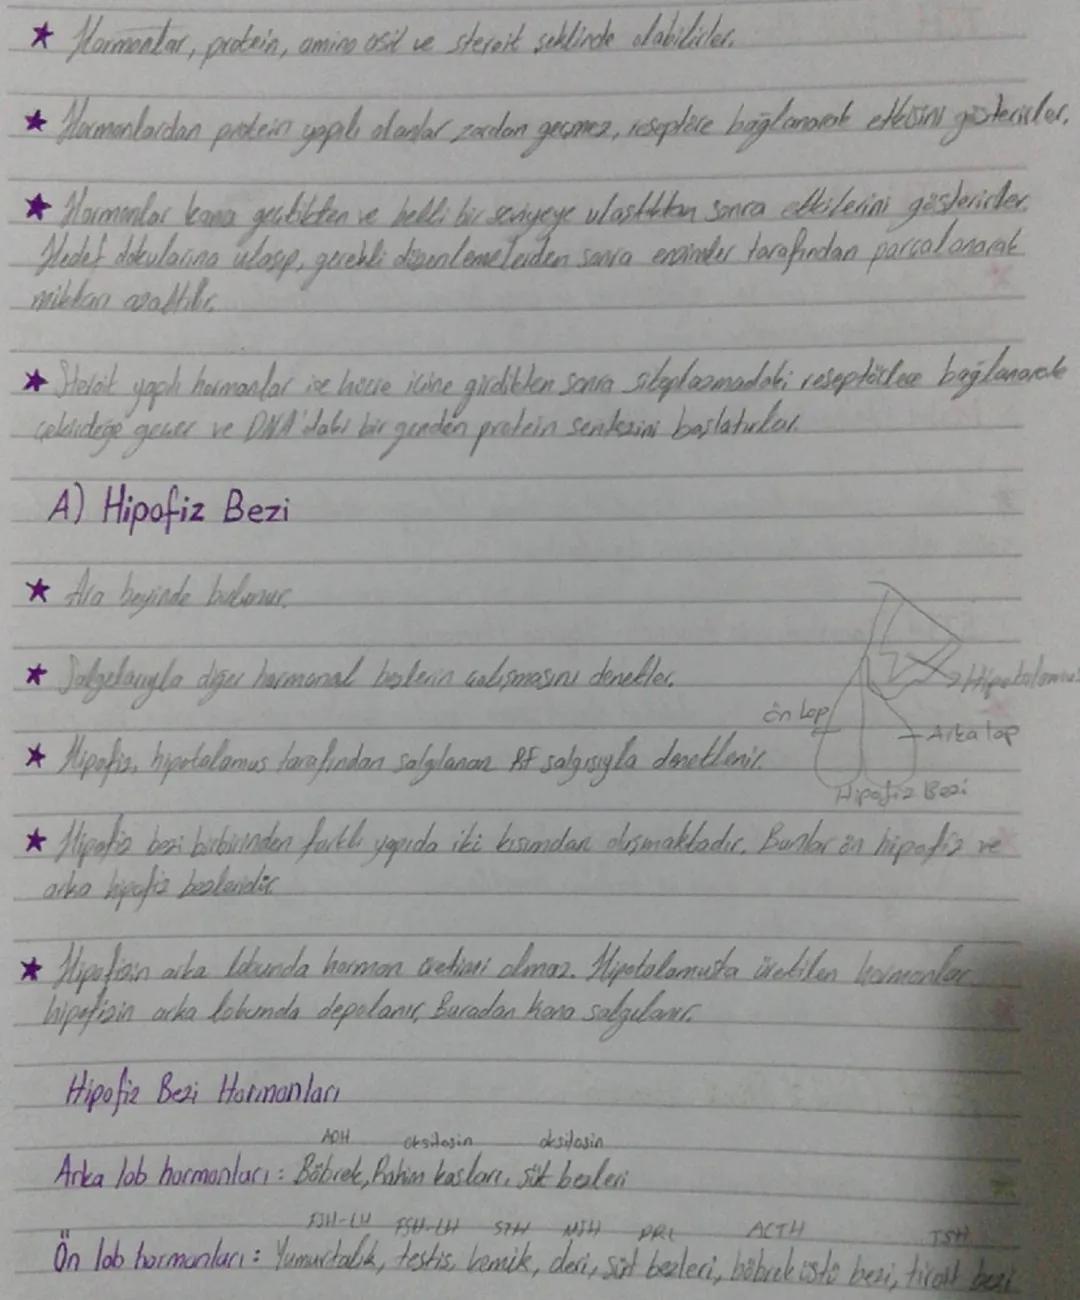 ★ Hormonlar, protein, amino asit ve steroit şeklinde olabilirler.
★ Hormonlardan protein yapılı olanlar zardan geçmez, reseptöre bağlanarak etkisini gösterirler.
★ Hormonlar kana geçtikten ve belli bir seviyeye ulaştıktan sonra etkilerini gösterirler.
Hedef dokularına ulaşıp, gerekli düzenlemelerden sonra enzimler tarafından parçalanarak
miktarı azaltılır.
★ Steroit yapılı hormonlar ise hücre içine girdikten sonra sitoplazmadaki reseptörlere bağlanarak
çekirdeğe geçer ve DNA'daki bir genden protein sentezini başlatırlar.
A) Hipofiz Bezi
★ Ara beyinde bulunur.
★ Salgılarıyla diğer hormonal bezlerin çalışmasını denetler.
Hipotalamus
Ön lop
Arka lop
★ Hipofiz, hipotalamus tarafından salgılanan RF salgısıyla denetlenir.
Hipofiz Bezi
★ Hipofiz bezi birbirinden farklı yapıda iki kısımdan oluşmaktadır. Bunlar ön hipofiz ve
arka hipofiz bezleridir.
★ Hipofizin arka lobunda hormon üretimi olmaz. Hipotalamusta üretilen hormonlar
hipofizin arka lobunda depolanır, Buradan kana salgılanır.
Hipofiz Bezi Hormonları
ADH oksitosin oksitosin
Arka lob hormonları: Böbrek, Rahim kasları, süt bezleri
FSH-LH FSH-LH STH MSH PRL ACTH TSH
Ön lob hormonları: Yumurtalık, testis, kemik, deri, süt bezleri, böbrek üstü bezi, tiroit bezi